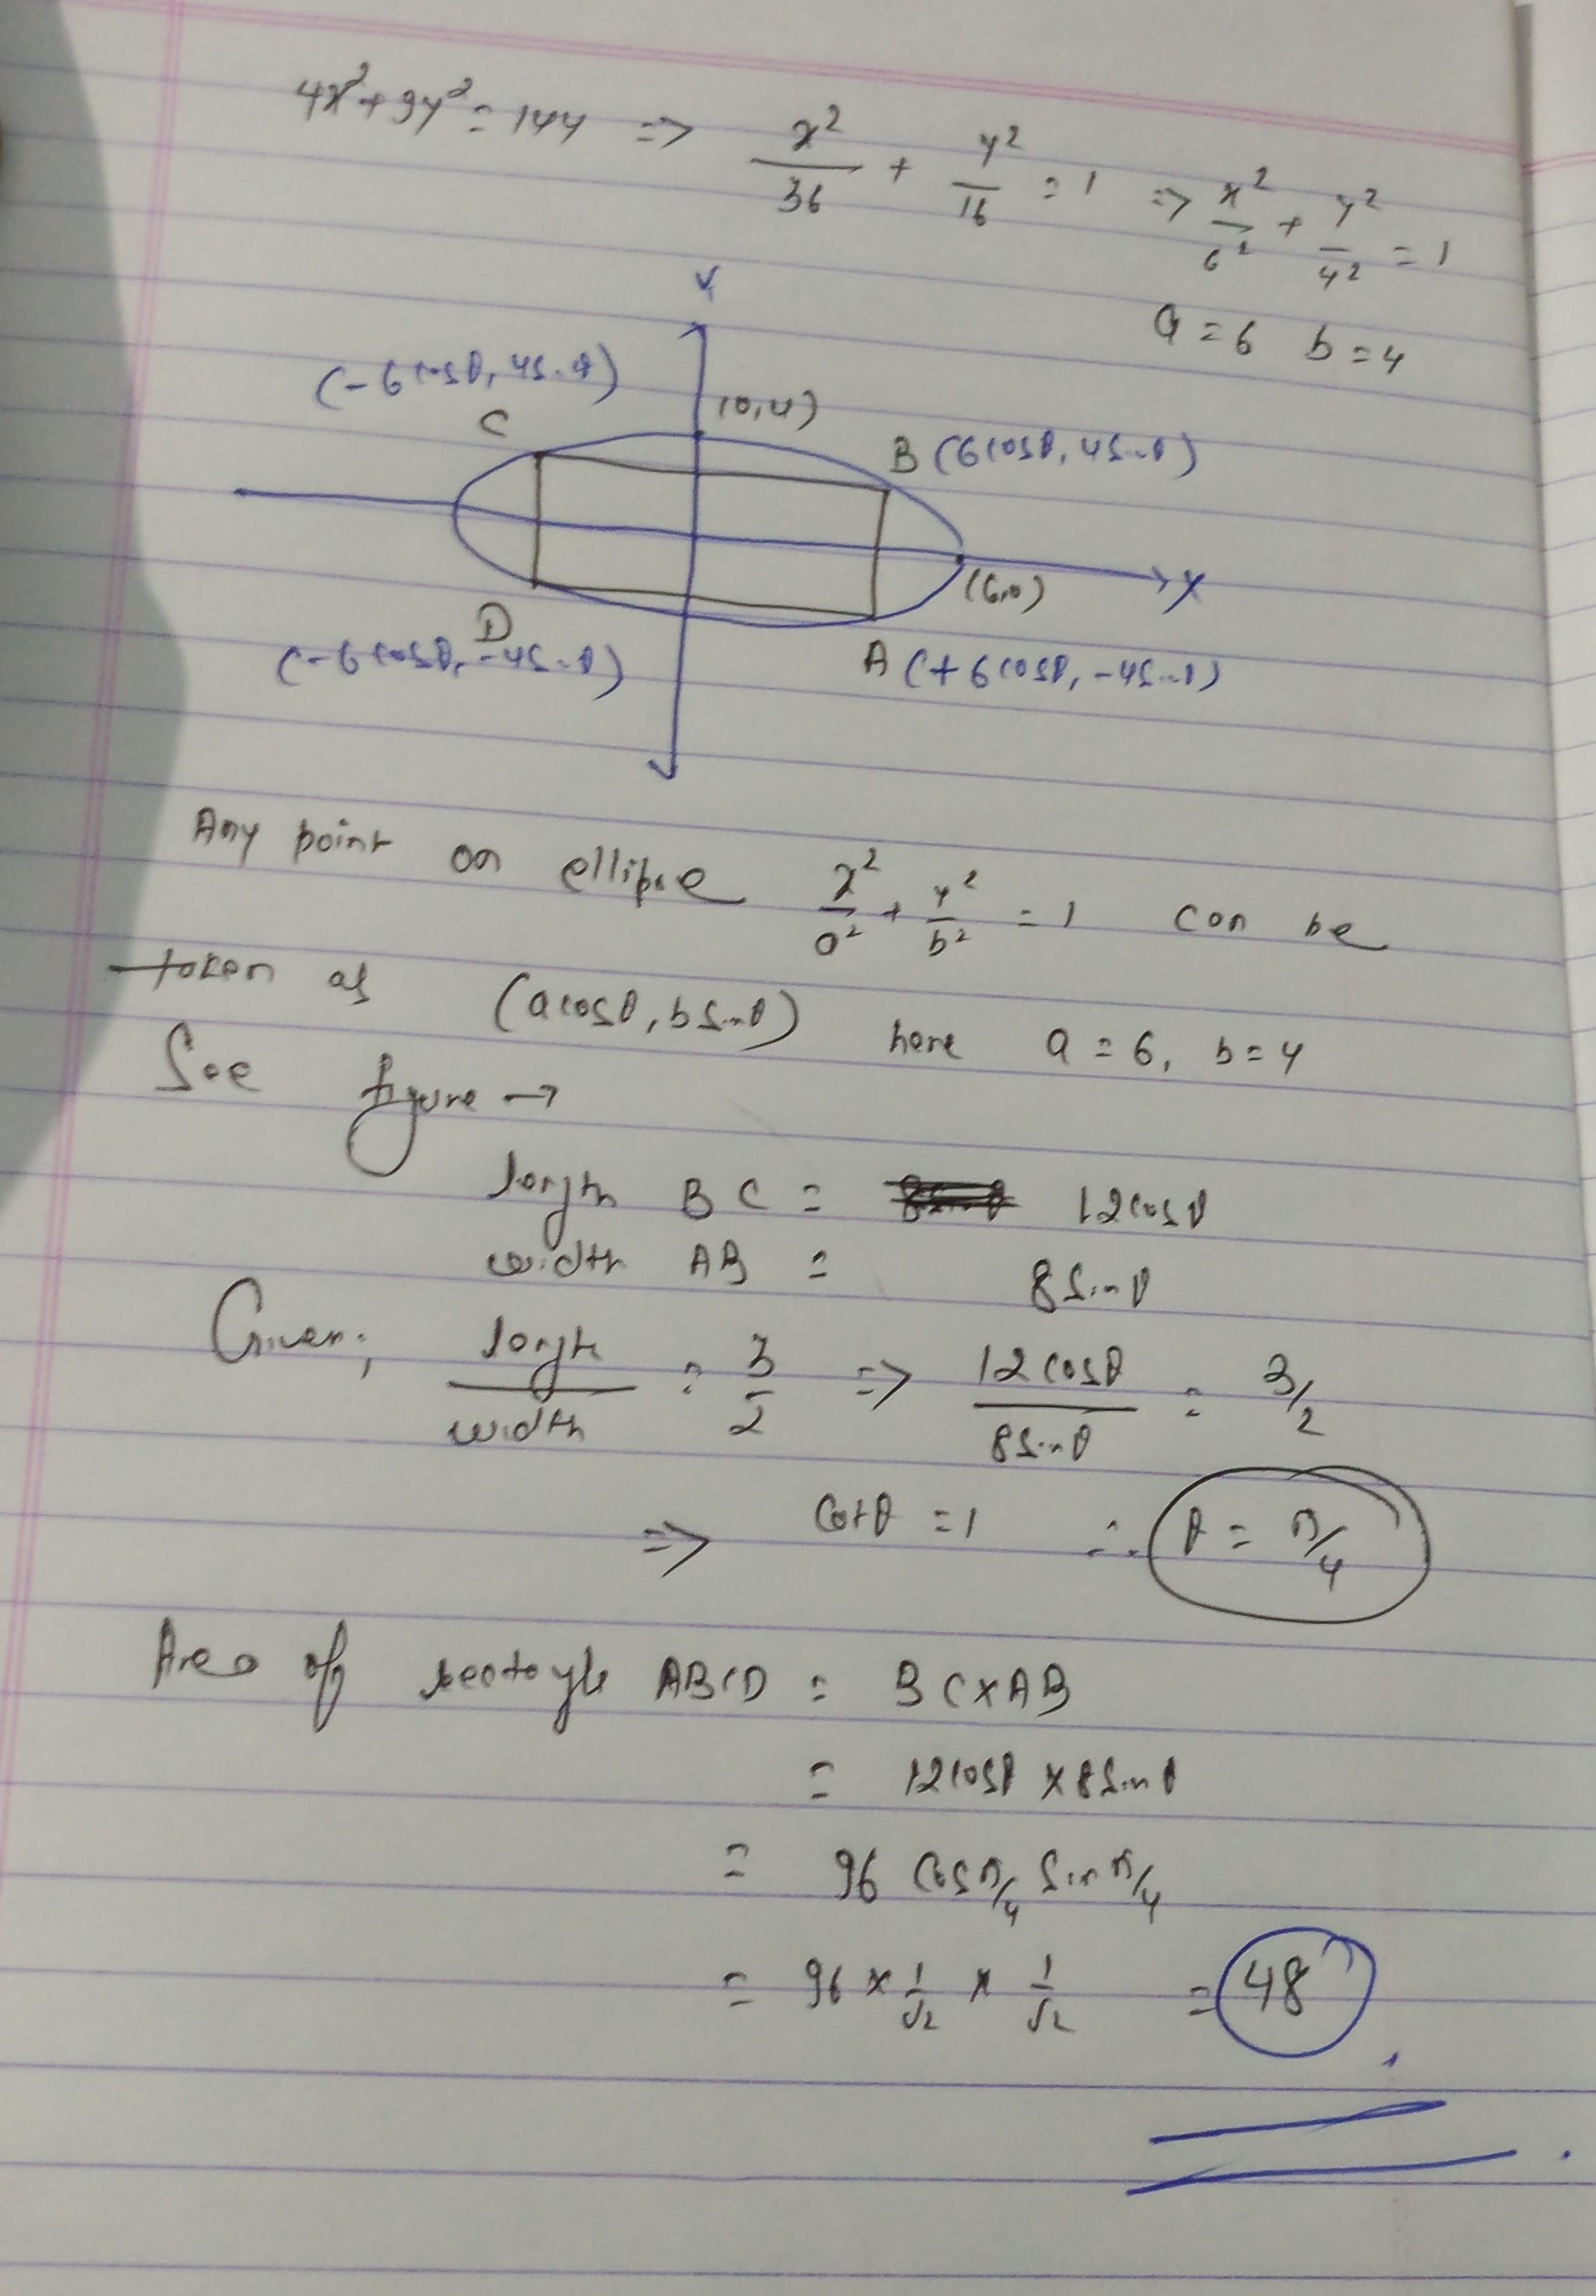 4x²+9y²=144 => x²/36 + y²/16 = 1 => x²/6² + y²/4² = 1
a=6 b=4
Y
(-6cosθ, 4sinθ)
(0,4)
C
B (6cosθ, 4sinθ)
X
(6,0)
D
(-6cosθ, -4sinθ)
A (+6cosθ, -4sinθ)
Any point on ellipse x²/a² + y²/b² = 1 can be
taken as (acosθ, bsinθ) here a=6, b=4
See figure →
length BC = 12cosθ
width AB = 8sinθ
Given; length/width = 3/2 => 12cosθ/8sinθ = 3/2
=> cotθ=1 ∴ θ = π/4
Area of rectangle ABCD = BC×AB
= 12cosθ × 8sinθ
= 96 cosπ/4 sinπ/4
= 96 × 1/√2 × 1/√2 = 48